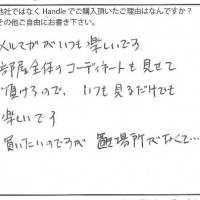 他社ではなく Handle でご購入頂いたご理由はなんですか?
その他ご自由にお書き下さい。
メルマガがいつも楽しいです
部屋全体のコーディネートも見せて
頂けるので、いつも見るだけでも
楽しいです
買いたいのですが 置場所がなくて…